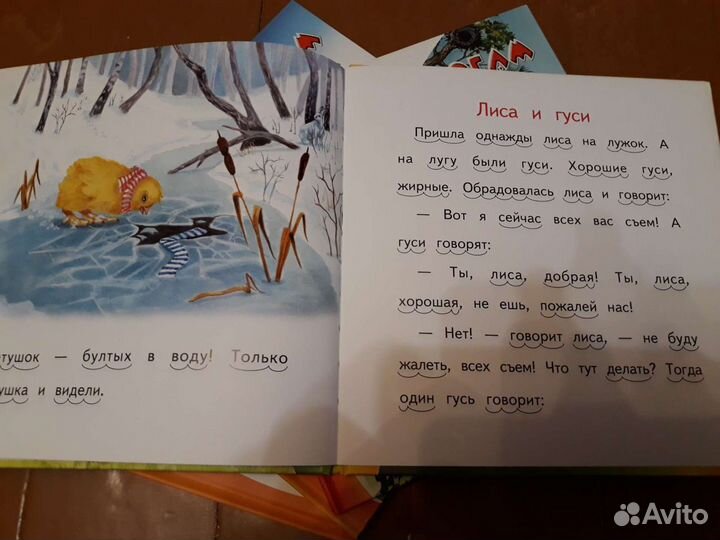 тушок — бултых в воду! Только
ушка и видели.
Лиса и гуси
Пришла однажды лиса на лужок. А
на лугу были гуси. Хорошие гуси,
жирные. Обрадовалась лиса и говорит:
— Вот я сейчас всех вас съем! А
гуси говорят:
— Ты, лиса, добрая! Ты, лиса,
хорошая, не ешь, пожалей нас!
— Нет! — говорит лиса, — не буду
жалеть, всех съем! Что тут делать? Тогда
один гусь говорит:
Avito